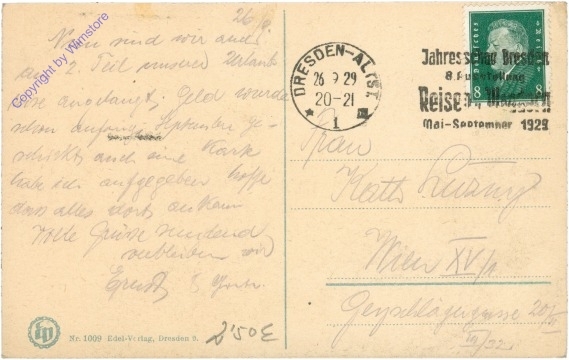 26/9
Nun sind wir auch
am 2. Teil unserer Urlaubs
angelangt, Geld wurde
schon anfangs September ge-
schickt, auch eine Karte
habe ich aufgegeben hoffe
dass alles dort ankam
Viele Grüsse sendend
verbleiben wir
Ernst &
Copyright by Wimstore
DRESDEN-ALTST.
26 9 29
20-21
* 1
Jahresschau Dresden
8. Ausstellung
Reisen Wandern
Mai-September 1929
8 8
Frau
Kath
Wien XV/1
20
Nr. 1009 Edel-Verlag, Dresden 9.
2'50€